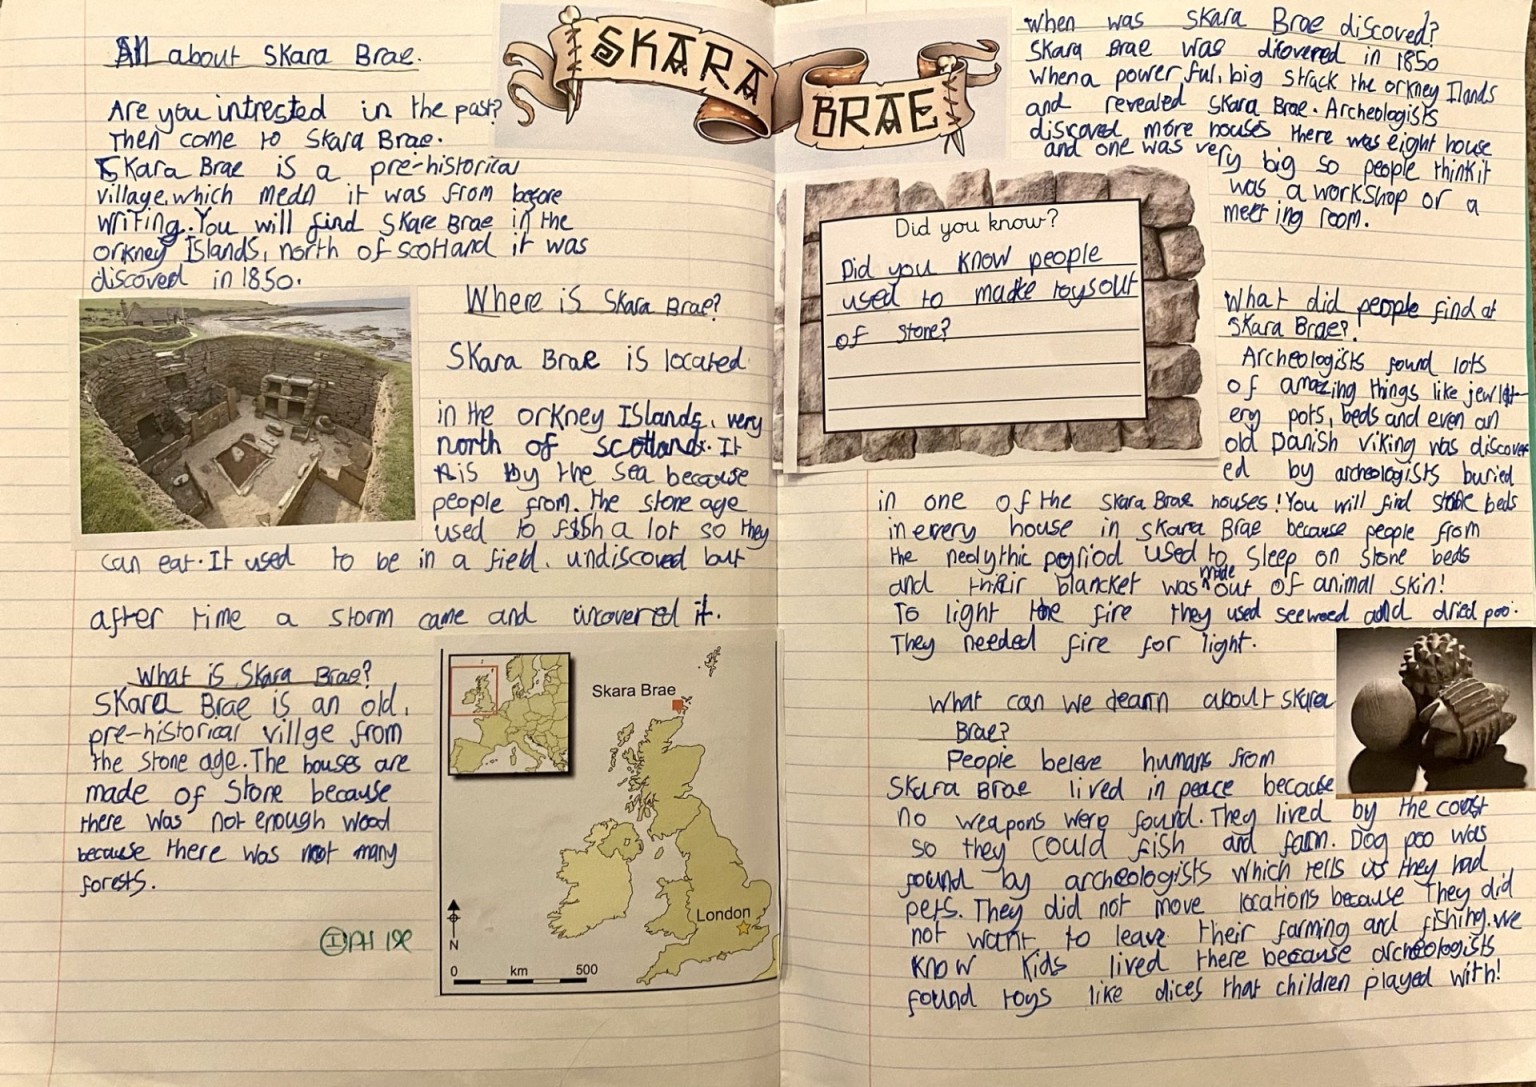 All about Skara Brae.
Are you intrested in the past?
Then come to Skara Brae.
Skara Brae is a pre-historical
village, which mean it was from before
writing. You will find Skare Brae in the
orkney Islands, north of scotland it was
discoved in 1850.
Where is Skara Brae?
Skara Brae is located
in the orkney Islands, very
north of scotland. It
is by the sea because
people from the stone age
used to fish a lot so they
can eat. It used to be in a field, undiscoved but
after time a storm came and uncovered it.
What is Skara Brae?
Skara Brae is an old,
pre-historical villge from
the stone age. The houses are
made of Stone because
there was not enough wood
because there was not many
forests.
Skara Brae
London
N
0 km 500
SKARA
BRAE
When was Skara Brae discoved?
Skara Brae was discovered in 1850
when a powerful, big strack the orkney Ilands
and revealed Skara Brae. Archeologists
discoved more houses there was eight house
and one was very big so people think it
was a workshop or a
meeting room.
Did you know?
Did you know people
used to make toys out
of stone?
What did people find at
Skara Brae?
Archeologists found lots
of amazing things like jewl
ery pots, beds and even an
old Danish viking was discover
ed by archeologists buried
in one of the Skara Brae houses! You will find stone beds
in every house in Skara Brae because people from
the neolythic peyriod used to sleep on stone beds
and thier blancket was made out of animal skin!
To light the fire they used seeweed and dried poo.
They needed fire for light.
What can we learn about Skara
Brae?
People beleve humans from
Skara Brae lived in peace because
no weapons were found. They lived by the coast
so they could fish and farm. Dog poo was
found by archeologists which tells us they had
pets. They did not move locations because They did
not want to leave their farming and fishing. we
know kids lived there because archeologists
found toys like dices that children played with!